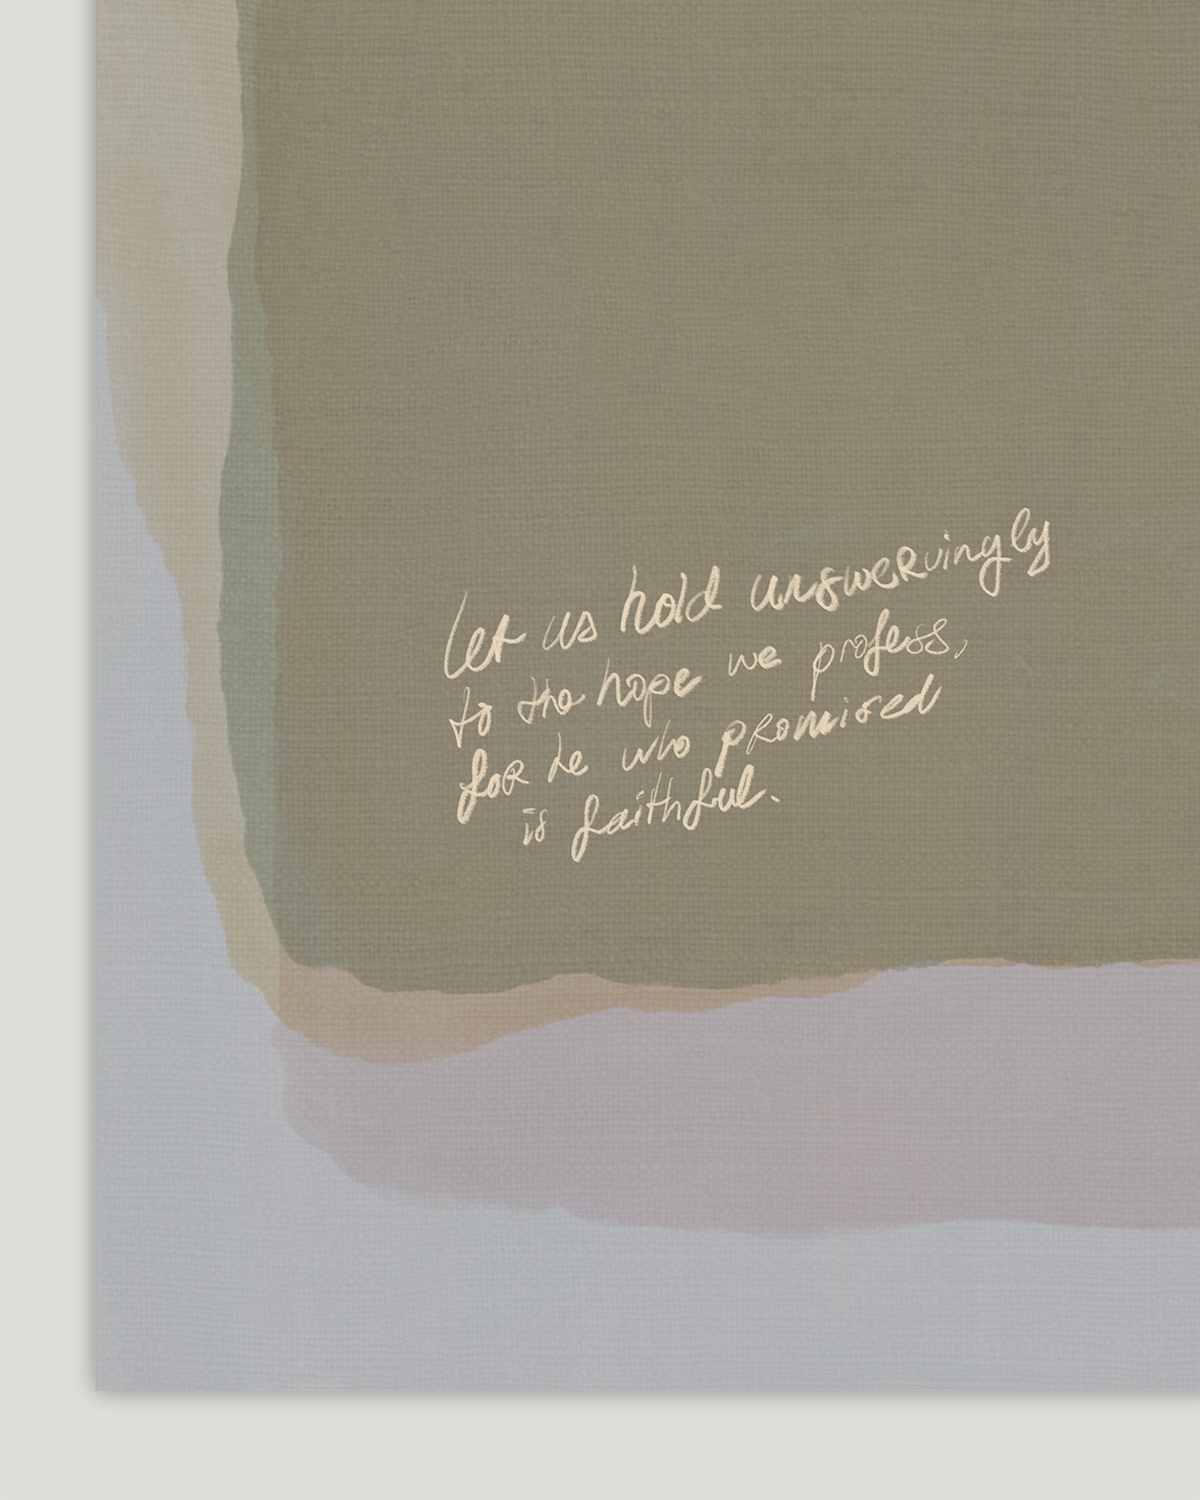 let us hold unswervingly
to the hope we profess,
for he who promised
is faithful.